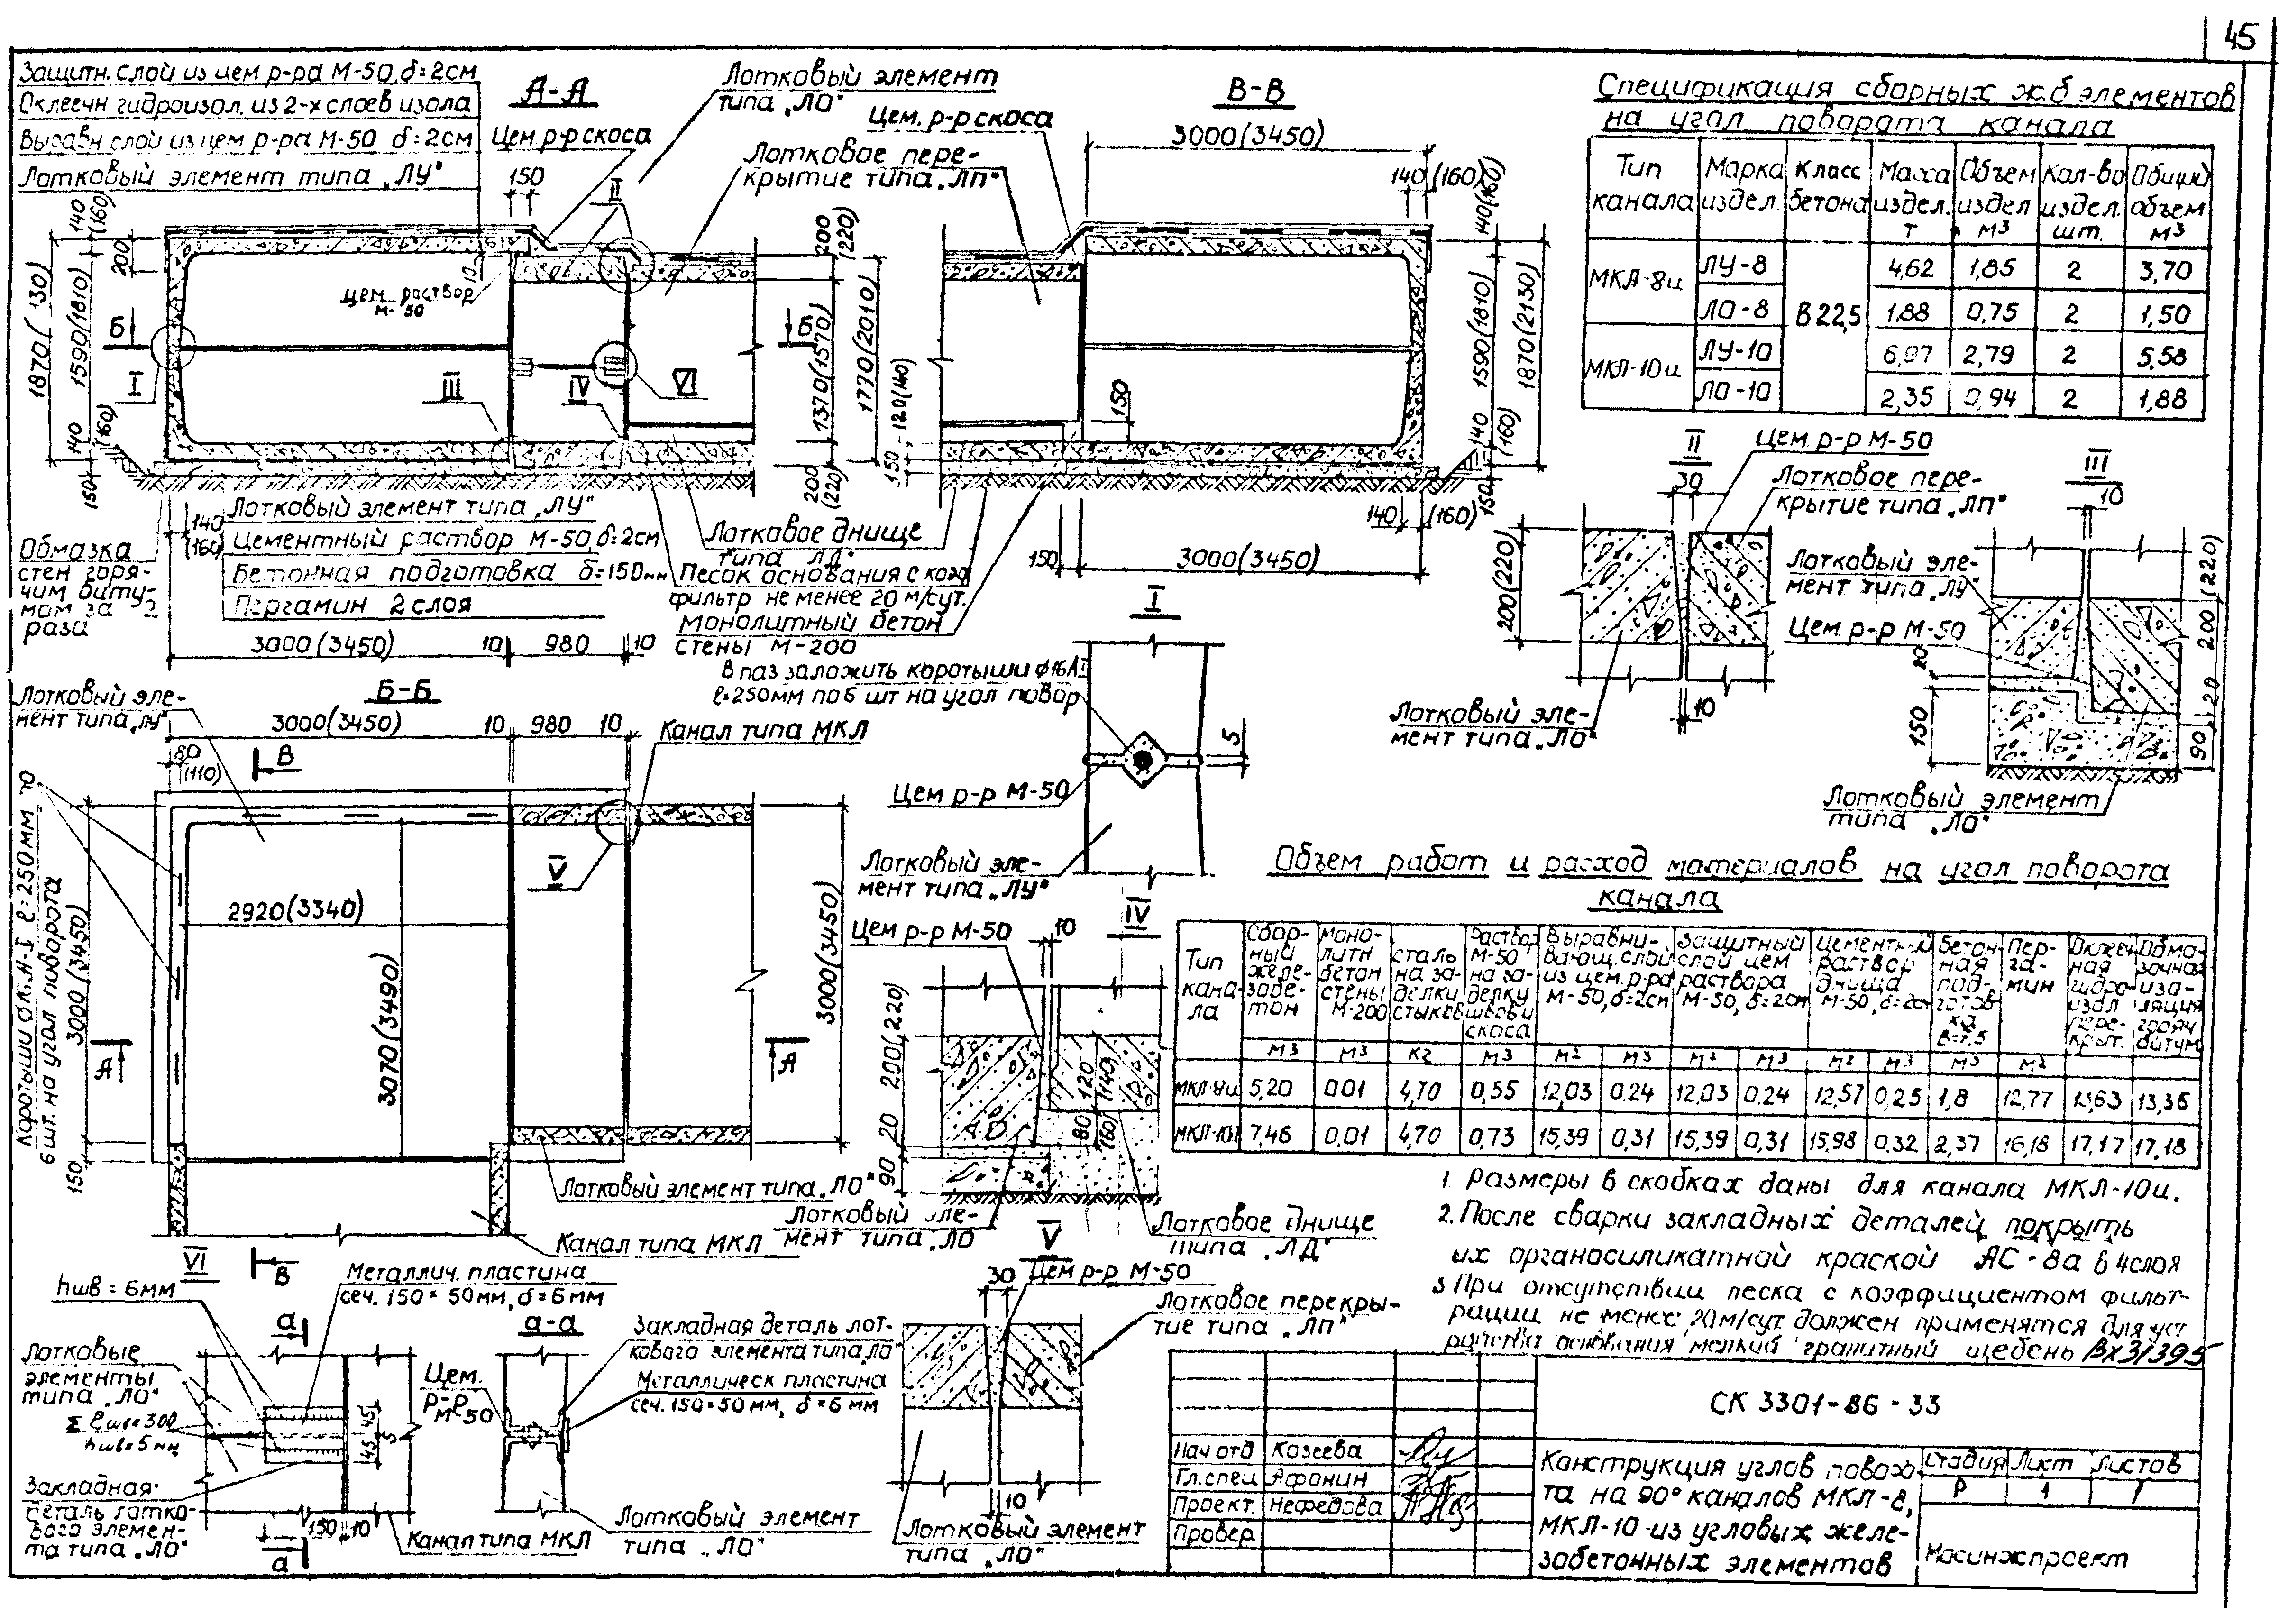 45
Защитн. слой из цем р-ра М-50, δ=2см
Оклеечн гидроизол. из 2-х слоев изола
Выравн слой из цем р-ра М-50 δ=2см
Лотковый элемент типа „ЛУ"
А-А
Цем. р-р скоса
Лотковый элемент
типа „ЛО"
Цем. р-р скоса
Лотковое пере-
крытие типа „ЛП"
150
II
140
(160)
200
1870(130)
1590(1810)
140
(160)
150
Б
I
10
цем. раствор
М-50
III
IV
VI
Б
200
(220)
1370(1570)
200
(220)
1770(2010)
120(140)
150
В-В
3000(3450)
140(160)
140(160)
1590(1810)
1870(2130)
140
(160)
150
150
140
(160)
150
3000(3450)
140
(160)
Лотковый элемент типа „ЛУ"
Цементный раствор М-50, δ=2см
Бетонная подготовка δ=150мм
Пергамин 2 слоя
Обмазка
стен горя-
чим биту-
мом за 2
раза
3000(3450)
10
980
10
Лотковое днище
типа „ЛД"
Песок основания с коэф
фильтр не менее 20 м/сут.
Монолитный бетон
стены М-200
Спецификация сборных ж.б элементов
на угол поворота канала
Тип
канала
Марка
издел.
Класс
бетона
Масса
издел.
т
Объем
издел
м3
Кол-во
издел.
шт.
Общий
объем
м3
МКЛ-8и
ЛУ-8
В22,5
4,62
1,85
2
3,70
ЛО-8
1,88
0,75
2
1,50
МКЛ-10и
ЛУ-10
6,97
2,79
2
5,58
ЛО-10
2,35
0,94
2
1,88
II
30
Цем. р-р М-50
Лотковое пере-
крытие типа „ЛП"
200(220)
Лотковый эле-
мент типа „ЛО"
10
III
10
Лотковый эле-
мент типа „ЛУ"
Цем. р-р М-50
200 (220)
20
150
20
90
Лотковый элемент
типа „ЛО"
I
В паз заложить коротыши ф16АI
ℓ=250мм по 6 шт на угол повор
5
Цем р-р М-50
Лотковый эле-
мент типа „ЛУ"
Б-Б
Лотковый эле-
мент типа „ЛУ"
3000(3450)
10
980
10
Канал типа МКЛ
80
(110)
В
V
2920(3340)
3070(3490)
3000(3450)
3000 (3450)
150
6 шт. на угол поворота
А
А
Лотковый элемент типа „ЛО"
Канал типа МКЛ
В
IV
Цем р-р М-50
10
200(220)
20
90
120
(140)
80
(60)
Лотковый эле-
мент типа „ЛО
Лотковое днище
типа „ЛД"
Объем работ и расход материалов на угол поворота
канала
Тип
кана-
ла
Сбор-
ный
желе-
зобе-
тон
Моно-
литн
бетон
стены
М-200
Сталь
на за-
делки
стыков
Раствор
М-50
на за-
делку
швов и
скоса
Выравни-
вающ. слой
из цем. р-ра
М-50, δ=2см
Защитный
слой цем
раствора
М-50, δ=2см
Цементный
раствор
днища
М-50, δ=2см
Бетон-
ная
под-
готов-
ка
В=7,5
Пер-
га-
мин
Оклееч
ная
гидро-
изол
пере-
крыт.
Обма-
зочная
изо-
ляция
горяч
битум
м3 м3 кг м3 м2 м3 м2 м3 м2 м3 м3 м2
МКЛ-8и 5,20 0.01 4,70 0,55 12,03 0.24 12,03 0.24 12,57 0,25 1,8 12,77 13,63 13,35
МКЛ-10и 7,46 0,01 4,70 0,73 15,39 0,31 15,39 0,31 15,98 0,32 2,37 16,18 17,17 17,18
1. Размеры в скобках даны для канала МКЛ-10и.
2. После сварки закладных деталей покрыть
их органосиликатной краской АС-8а в 4 слоя
3 При отсутствии песка с коэффициентом фильт-
рации не менее 20 м/сут. должен применятся для уст
ройства основания мелкий гранитный щебень Вх31395
VI
hшв=6мм
Металлич. пластина
сеч. 150×50мм, δ=6мм
а
Лотковые
элементы
типа „ЛО"
Σ ℓшв=300
hшв=5мм
45
5
45
Закладная
деталь лотко-
вого элемен-
та типа „ЛО"
150
10
а
Канал типа МКЛ
а-а
Закладная деталь лот-
кового элемента типа „ЛО"
Цем.
р-р
М-50
Металлическ пластина
сеч. 150×50мм, δ=6мм
Лотковый элемент
типа „ЛО"
V
30
Цем р-р М-50
Лотковое перекры-
тие типа „ЛП"
10
Лотковый элемент
типа „ЛО"
СК 3301-86-33
Нач отд Козеева
Гл.спец Афонин
Проект. Нефедова
Провер
Конструкция углов поворо-
та на 90° каналов МКЛ-8,
МКЛ-10 из угловых желе-
зобетонных элементов
Стадия Лист Листов
Р 1 1
Мосинжпроект